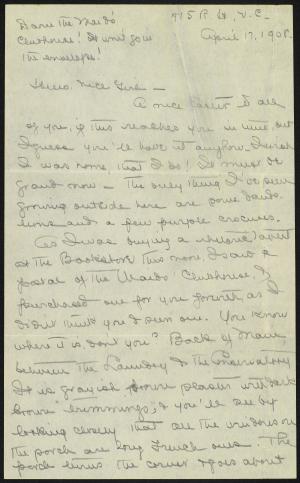 Darn the Maids'
Clubhouse! It won't go in
the envelope!
715 R. St., V. C.
April 17, 1908.
Hello, Nice Girls —
A nice Easter to all
of you, if this reaches you in time, but
I guess you'll have it anyhow. I wish
I was home, that I do! It must be
grand now — The only thing I've seen
growing outside here are some dande-
lions and a few purple crocuses.
As I was buying a
at the Bookstore this morn, I saw a
postal of the Maids' Clubhouse, &
purchased one for you forth, as I
didn't think you'd seen one. You know
where it is, don't you? Back of Main,
between the Laundry & the Conservatory
It is grayish brown plaster with dark
brown trimmings, & you'll see by
looking closely that all the windows on
the porch are long French ones. The
porch turns the corner & goes about